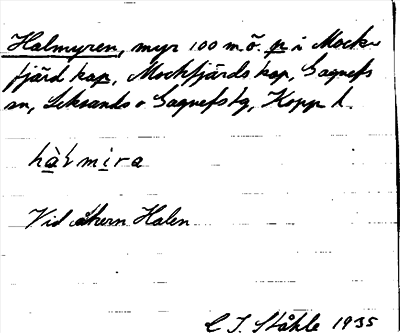 Halmyren, myr 100 m. ö. g i Mock-
fjärd kap, Mockfjärds kap, Gagnefs
sn, Leksands o Gagnefs tg, Kopp l.
Vid åkern Halen
C I. Ståhle 1935